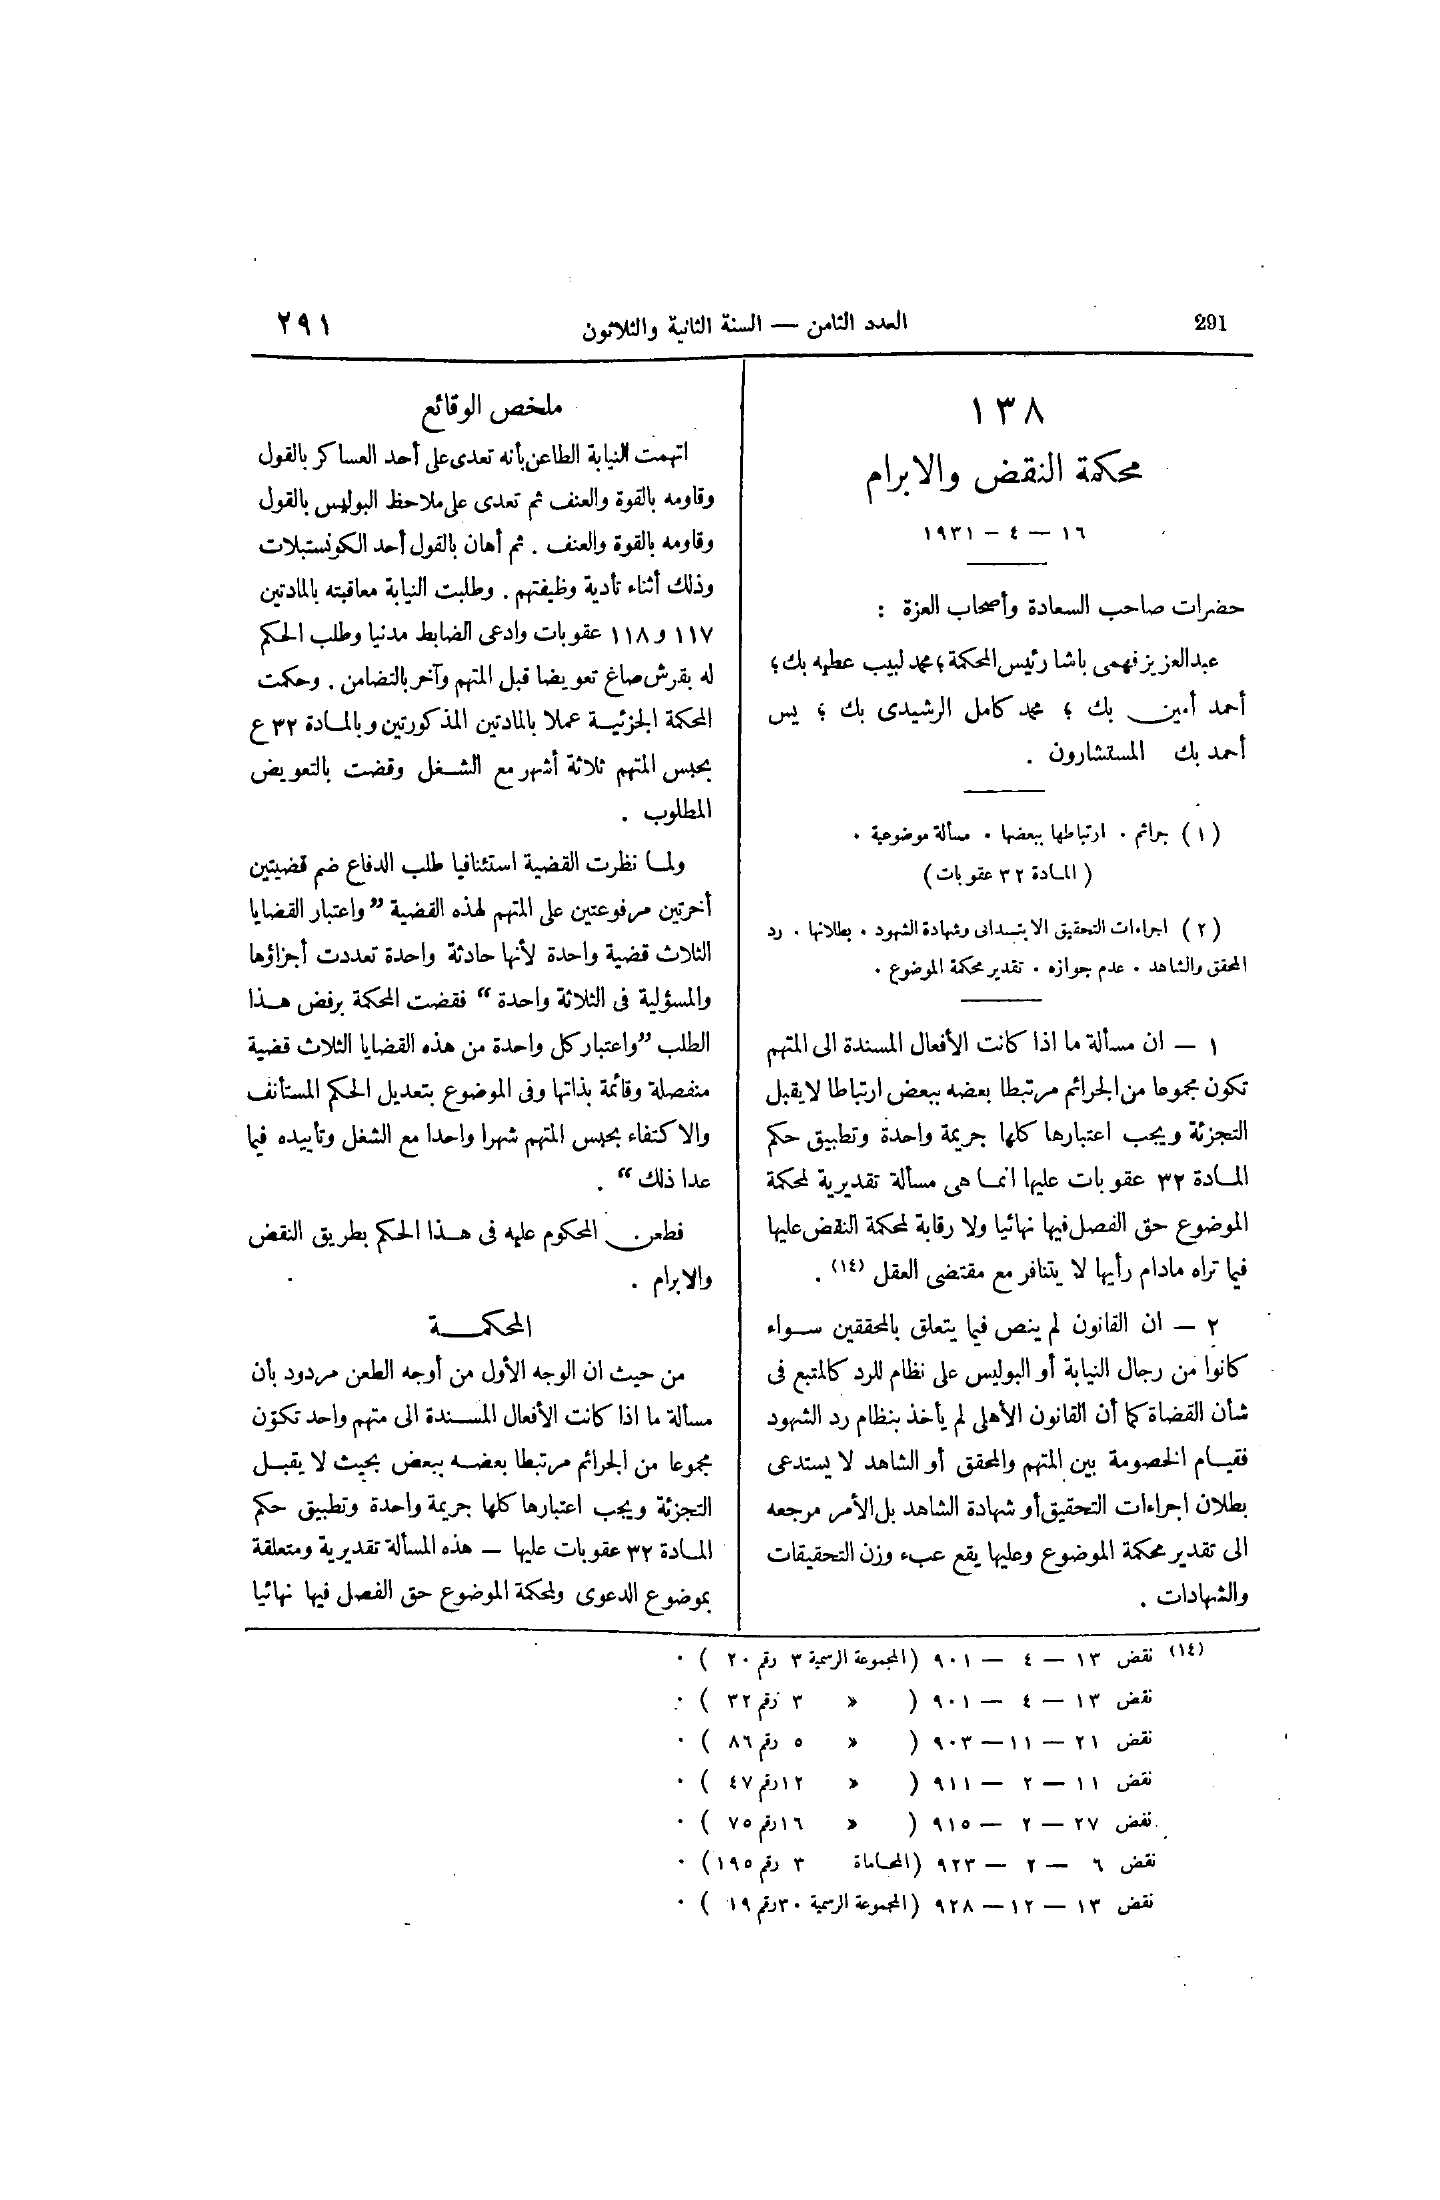 291
العدد الثامن — السنة الثانية والثلاثون
٢٩١
١٣٨
محكمة النقض والابرام
١٦ — ٤ — ١٩٣١
حضرات صاحب السعادة وأصحاب العزة :
عبدالعزيز فهمى باشا رئيس المحكمة ؛ محمد لبيب عطيه بك ؛
أحمد أمين بك ؛ محمد كامل الرشيدى بك ؛ يس
أحمد بك المستشارون .
(١) جرائم . ارتباطها ببعضها . مسألة موضوعية .
(المادة ٣٢ عقوبات)
(٢) اجراءات التحقيق الابتدائى وشهادة الشهود . بطلانها . رد
المحقق والشاهد . عدم جوازه . تقدير محكمة الموضوع .
١ — ان مسألة ما اذا كانت الأفعال المسندة الى المتهم
تكون مجموعا من الجرائم مرتبطا بعضه ببعض ارتباطا لا يقبل
التجزئة ويجب اعتبارها كلها جريمة واحدة وتطبيق حكم
المادة ٣٢ عقوبات عليها انما هى مسألة تقديرية لمحكمة
الموضوع حق الفصل فيها نهائيا ولا رقابة لمحكمة النقض عليها
فيما تراه مادام رأيها لا يتنافر مع مقتضى العقل (١٤) .
٢ — ان القانون لم ينص فيما يتعلق بالمحققين سواء
كانوا من رجال النيابة أو البوليس على نظام للرد كالمتبع فى
شأن القضاة كما أن القانون الأهلى لم يأخذ بنظام رد الشهود
فقيام الخصومة بين المتهم والمحقق أو الشاهد لا يستدعى
بطلان اجراءات التحقيق أو شهادة الشاهد بل الأمر مرجعه
الى تقدير محكمة الموضوع وعليها يقع عبء وزن التحقيقات
والشهادات .
ملخص الوقائع
اتهمت النيابة الطاعن بأنه تعدى على أحد العساكر بالقول
وقاومه بالقوة والعنف ثم تعدى على ملاحظ البوليس بالقول
وقاومه بالقوة والعنف . ثم أهان بالقول أحد الكونستبلات
وذلك أثناء تأدية وظيفتهم . وطلبت النيابة معاقبته بالمادتين
١١٧ و ١١٨ عقوبات وادعى الضابط مدنيا وطلب الحكم
له بقرش صاغ تعويضا قبل المتهم وآخر بالتضامن . وحكمت
المحكمة الجزئية عملا بالمادتين المذكورتين وبالمادة ٣٢ ع
بحبس المتهم ثلاثة أشهر مع الشغل وقضت بالتعويض
المطلوب .
ولما نظرت القضية استئنافيا طلب الدفاع ضم قضيتين
أخرتين مرفوعتين على المتهم لهذه القضية ”واعتبار القضايا
الثلاث قضية واحدة لأنها حادثة واحدة تعددت أجزاؤها
والمسؤلية فى الثلاثة واحدة“ فقضت المحكمة برفض هذا
الطلب ”واعتبار كل واحدة من هذه القضايا الثلاث قضية
منفصلة وقائمة بذاتها وفى الموضوع بتعديل الحكم المستأنف
والاكتفاء بحبس المتهم شهرا واحدا مع الشغل وتأييده فيما
عدا ذلك“ .
فطعن المحكوم عليه فى هذا الحكم بطريق النقض
والابرام .
المحكمة
من حيث ان الوجه الأول من أوجه الطعن مردود بأن
مسألة ما اذا كانت الأفعال المسندة الى متهم واحد تكوّن
مجموعا من الجرائم مرتبطا بعضه ببعض بحيث لا يقبل
التجزئة ويجب اعتبارها كلها جريمة واحدة وتطبيق حكم
المادة ٣٢ عقوبات عليها — هذه المسألة تقديرية ومتعلقة
بموضوع الدعوى ولمحكمة الموضوع حق الفصل فيها نهائيا
(١٤) نقض ١٣ — ٤ — ٩٠١ (المجموعة الرسمية ٣ رقم ٢٠ ) .
نقض ١٣ — ٤ — ٩٠١ ( » ٣ رقم ٣٢ ) .
نقض ٢١ — ١١ — ٩٠٣ ( » ٥ رقم ٨٦ ) .
نقض ١١ — ٢ — ٩١١ ( » ١٢ رقم ٤٧ ) .
نقض ٢٧ — ٢ — ٩١٥ ( » ١٦ رقم ٧٥ ) .
نقض ٦ — ٢ — ٩٢٣ (المحاماة ٣ رقم ١٩٥) .
نقض ١٣ — ١٢ — ٩٢٨ (المجموعة الرسمية ٣٠ رقم ١٩ ) .